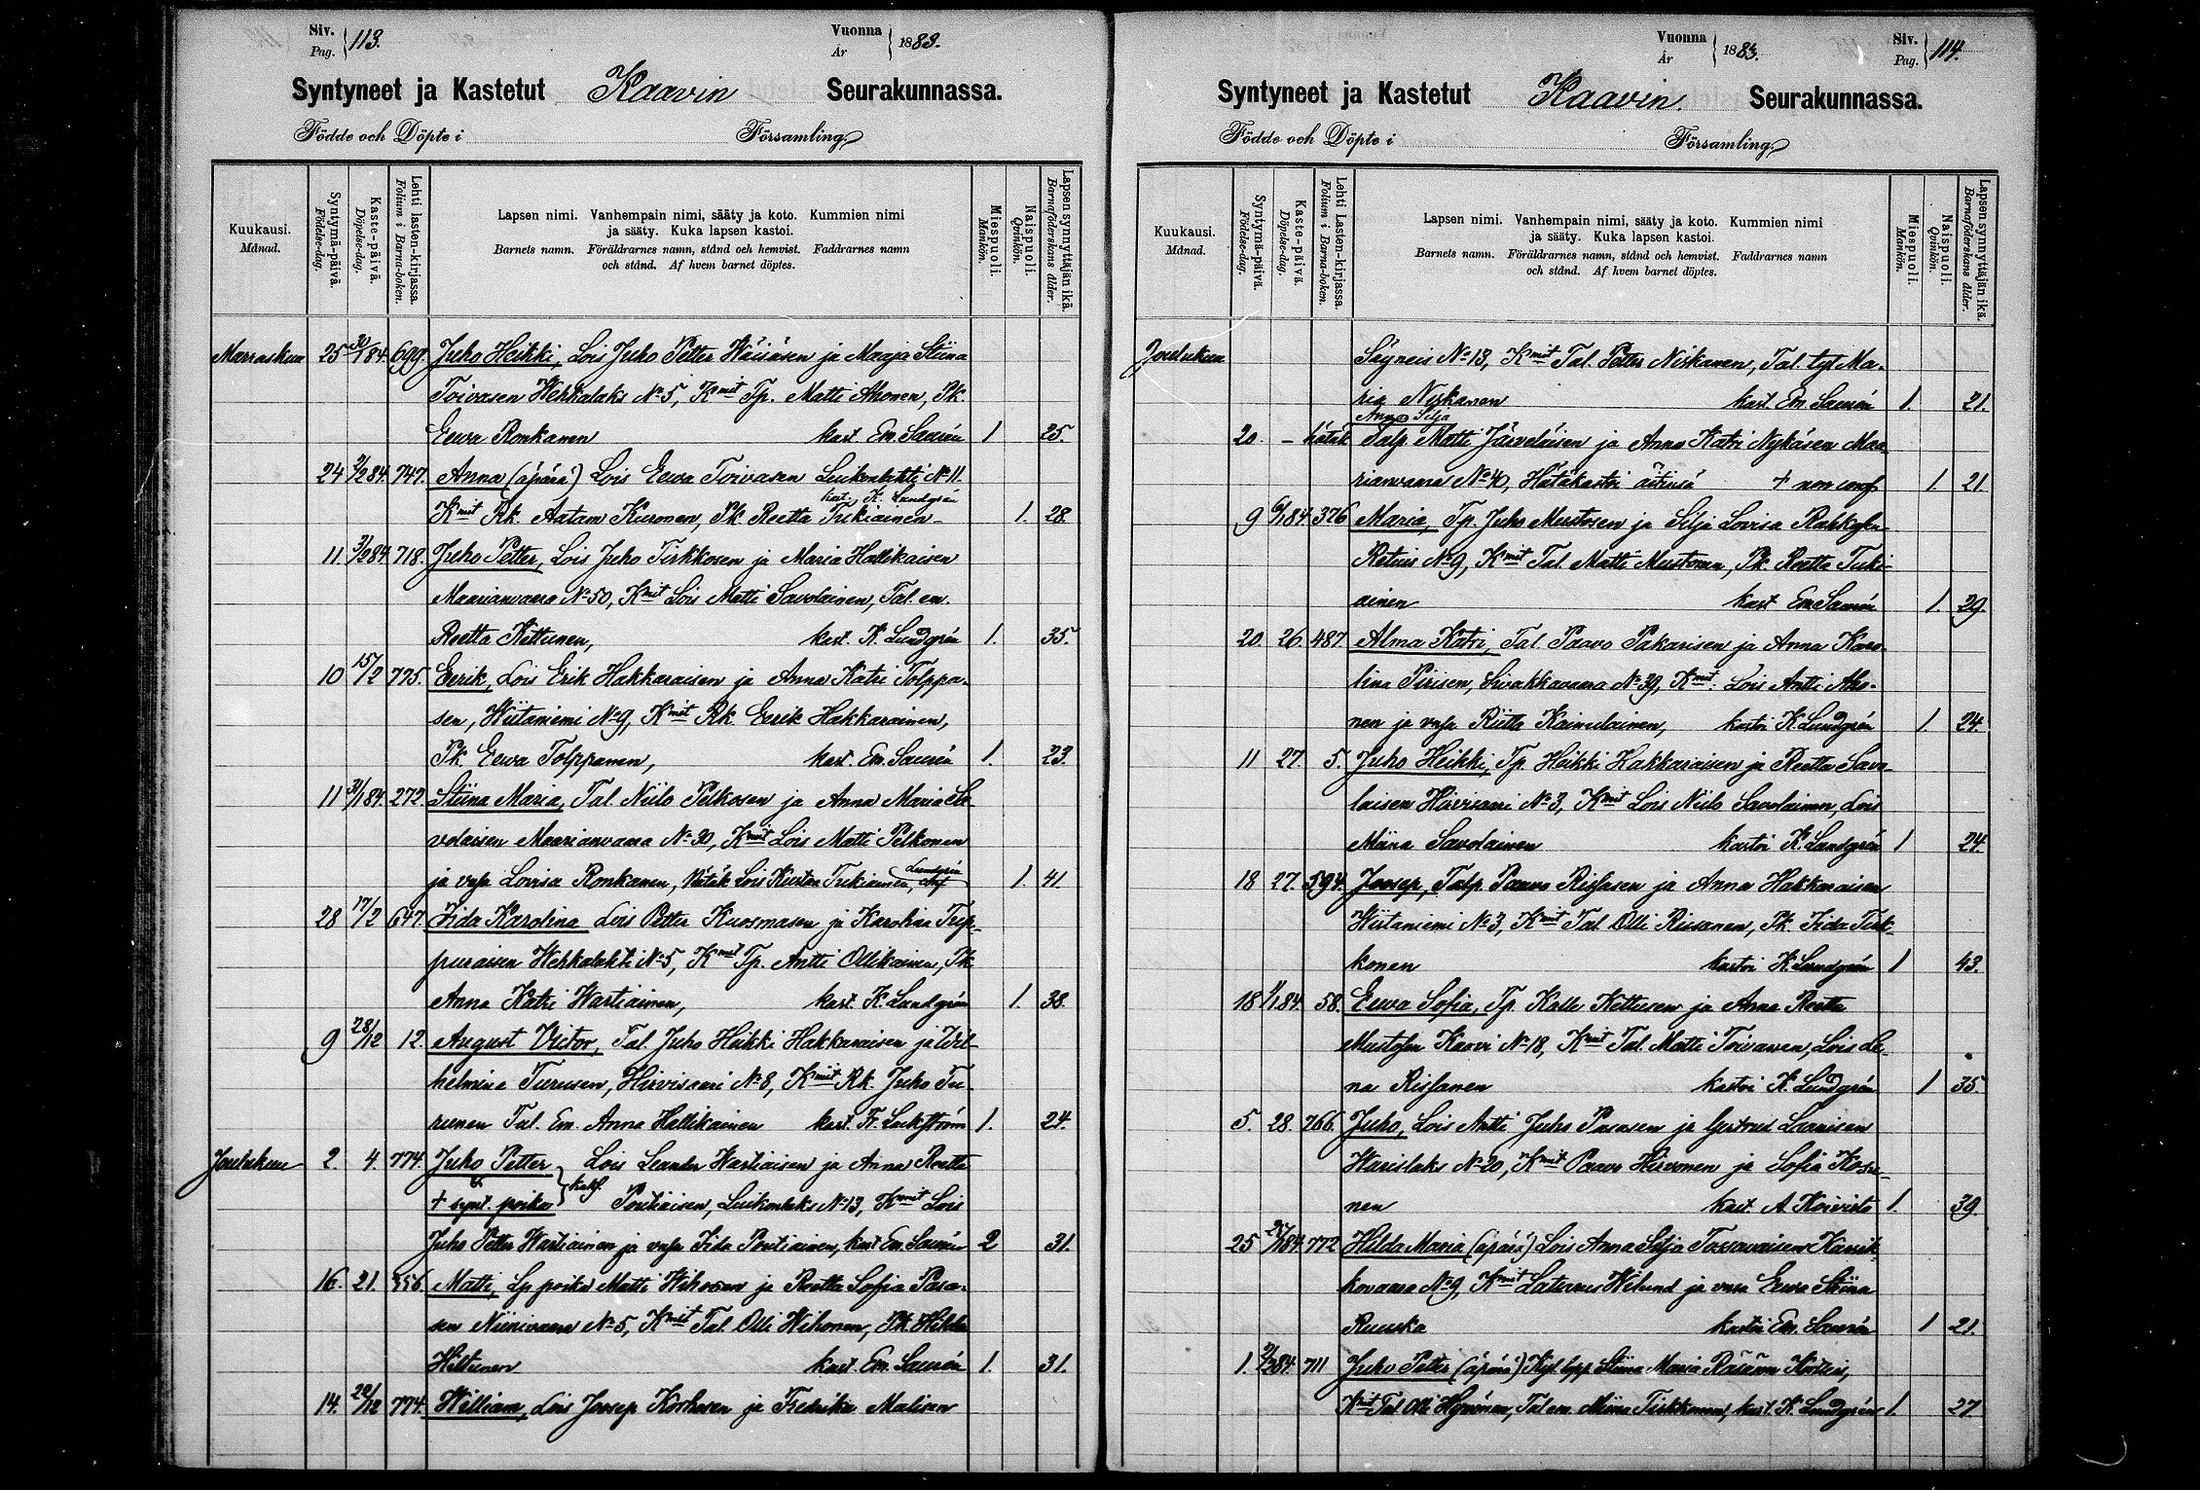 Siv. Pag. 113. Vuonna År 1883.
Syntyneet ja Kastetut Kaavin Seurakunnassa.
Födde och Döpte i Församling
Kuukausi. Månad. Syntymä-päivä. Födelse-dag. Kaste-päivä. Döpelse-dag. Lehti lasten-kirjassa. Folium i Barna-boken. Lapsen nimi. Vanhempain nimi, sääty ja koto. Kummien nimi ja sääty. Kuka lapsen kastoi. Barnets namn. Föräldrarnes namn, stånd och hemvist. Faddrarnes namn och stånd. Af hvem barnet döptes. Miespuoli. Mankön. Naispuoli. Qvinkön. Lapsen synnyttäjän ikä. Barnaföderskans ålder.
Marraskuu 25 30/1 84. 699. Juho Heikki, Lois Juho Petter Wäisäsen ja Maaja Stiina
Toivasen Wehkalaks No 5, Kmit Tp. Matti Ahonen, Pk.
Eewa Ronkanen kast. Em. Saurén 1 25.
24 2/2 84. 747. Anna (äpärä) Lois Eewa Toivasen Luikonlahti No 11.
Kmit Rk. Aatam Kuronen, Pk Reetta Tukiainen kast. K. Lundgrén 1. 28.
11. 3/2 84 718. Juho Petter, Lois Juho Tirkkosen ja Maria Hallikaisen
Maarianvaara No 50, Kmit Lois Matti Savolainen, Tal. em.
Reetta Kettunen, kast. K. Lundgrén 1. 35.
10 15/2 775. Eerik, Lois Erik Hakkaraisen ja Anna Katri Tolppa-
sen, Wiitaniemi No 9, Kmit Rk. Eerik Hakkarainen,
Pk. Eewa Tolppanen, kast. Em. Saurén 1. 23.
11 31/1 84. 272. Stiina Maria, Tal. Niilo Pelkosen ja Anna Maria Sa-
volaisen Maarianvaara No 30, Kmit Lois Matti Pelkonen
ja vaja Lovisa Ronkanen, Hätäk Lois Kustaa Tukiainen, Lundgrén 1. 41.
28 17/2 647. Iida Karolina Lois Petter Kuosmasen ja Karolina Trip-
puraisen Wehkalahti No 5, Kmit Tp. Antti Ollikainen, Pk
Anna Katri Wartiainen, kast. K. Lundgrén 1. 38.
9 28/12 12. August Victor, Tal. Juho Heikki Hakkaraisen ja Wil-
helmina Turusen, Hirvisaari No 8, Kmit Rk. Juho Tu-
runen Tal. Em. Anna Hallikainen kast. 1. 24.
Joulukuu 2. 4. 774. Juho Petter Lois Leander Wartiaisen ja Anna Reetta
+ synt. poika Poutiaisen, Luikonlaks No 13, Kmit Lois
Juho Petter Wartiainen ja vaja Iida Poutiainen, kast Em. Saurén 2 31.
16. 21. 556. Matti, Lp. poika Matti Wihosen ja Reetta Sofia Pasa-
sen Niinivaara No 5, Kmit Tal. Olli Wihonen, Pk. Hilda
Hiltunen kast. Em. Saurén 1. 31.
14. 29/12 774. William, Lois Joosep Korhosen ja Fredrika Malisen
Vuonna År 1883. Siv. Pag. 114.
Syntyneet ja Kastetut Kaavin Seurakunnassa.
Födde och Döpte i Församling
Kuukausi. Månad. Syntymä-päivä. Födelse-dag. Kaste-päivä. Döpelse-dag. Lehti Lasten-kirjassa. Folium i Barna-boken. Lapsen nimi. Vanhempain nimi, sääty ja koto. Kummien nimi ja sääty. Kuka lapsen kastoi. Barnets namn. Föräldrarnes namn, stånd och hemvist. Faddrarnes namn och stånd. Af hvem barnet döptes. Miespuoli. Mankön. Naispuoli. Qvinkön. Lapsen synnyttäjän ikä. Barnaföderskans ålder.
Joulukuu Säyneis No 13, Kmit Tal. Petter Niskanen, Tal. tyt Ma-
ria Niskanen kast. Em. Saurén 1. 21.
Anna Silja
20. – hätäk Talp. Matti Järveläisen ja Anna Katri Nykäsen Maa-
rianvaara No 40, Hätäkastoi äitinsä + 1. 21.
9 6/1 84 376 Maria, Tp. Juho Mustosen ja Silja Lovisa
Retuis No 9, Kmit Tal. Matti Mustonen, Pk. Reetta Tuki-
ainen kast Em Saurén 1. 29.
20. 26. 487. Alma Katri, Tal. Paavo Pakarisen ja Anna Karo-
lina Pirisen, Sivakkavaara No 39, Kmit: Lois Antti Aho-
nen ja vaja Riitta Kainulainen, kastoi K. Lundgrén 1. 24.
11 27. 5. Juho Heikki, Tp. Heikki Hakkaraisen ja Reetta Savo-
laisen Hirvisaari No 3, Kmit Lois Niilo Savolainen, Lois
Miina Savolainen kastoi K. Lundgrén 1 24.
18 27. 594. Joosep, Talp. Paavo Rissasen ja Anna Hakkaraisen
Wiitaniemi No 3, Kmit Tal. Olli Rissanen, Pk. Iida Tirk-
konen kastoi K. Lundgrén 1 43.
18 1/1 84. 58. Eewa Sofia, Tp. Kalle Kettusen ja Anna Reetta
Mustosen Kaavi No 18, Kmit Tal. Matti Toivanen, Lois Le-
na Rissanen kastoi K. Lundgrén 1 35.
5. 28. 766. Juho, Lois Antti Juho Pasasen ja Gertrud Laarisen
Warislaks No 20, Kmit Paavo Hirvonen ja Sofia
nen kast A. Koivisto 1. 39.
25 84 772 Hilda Maria (äpärä) Lois Anna Silja Tossavaisen Kärsik-
kovaara No 9, Kmit Wilund ja vaja Eewa Stiina
Ruuska kastoi Em. Saurén 1 21.
1. 84. 711 Juho Petter (äpärä) Stiina Maria Räsänen
Kmit Tal. Olli Hyvönen, Tal em. Miina Tirkkonen, kast. K. Lundgrén 1. 27